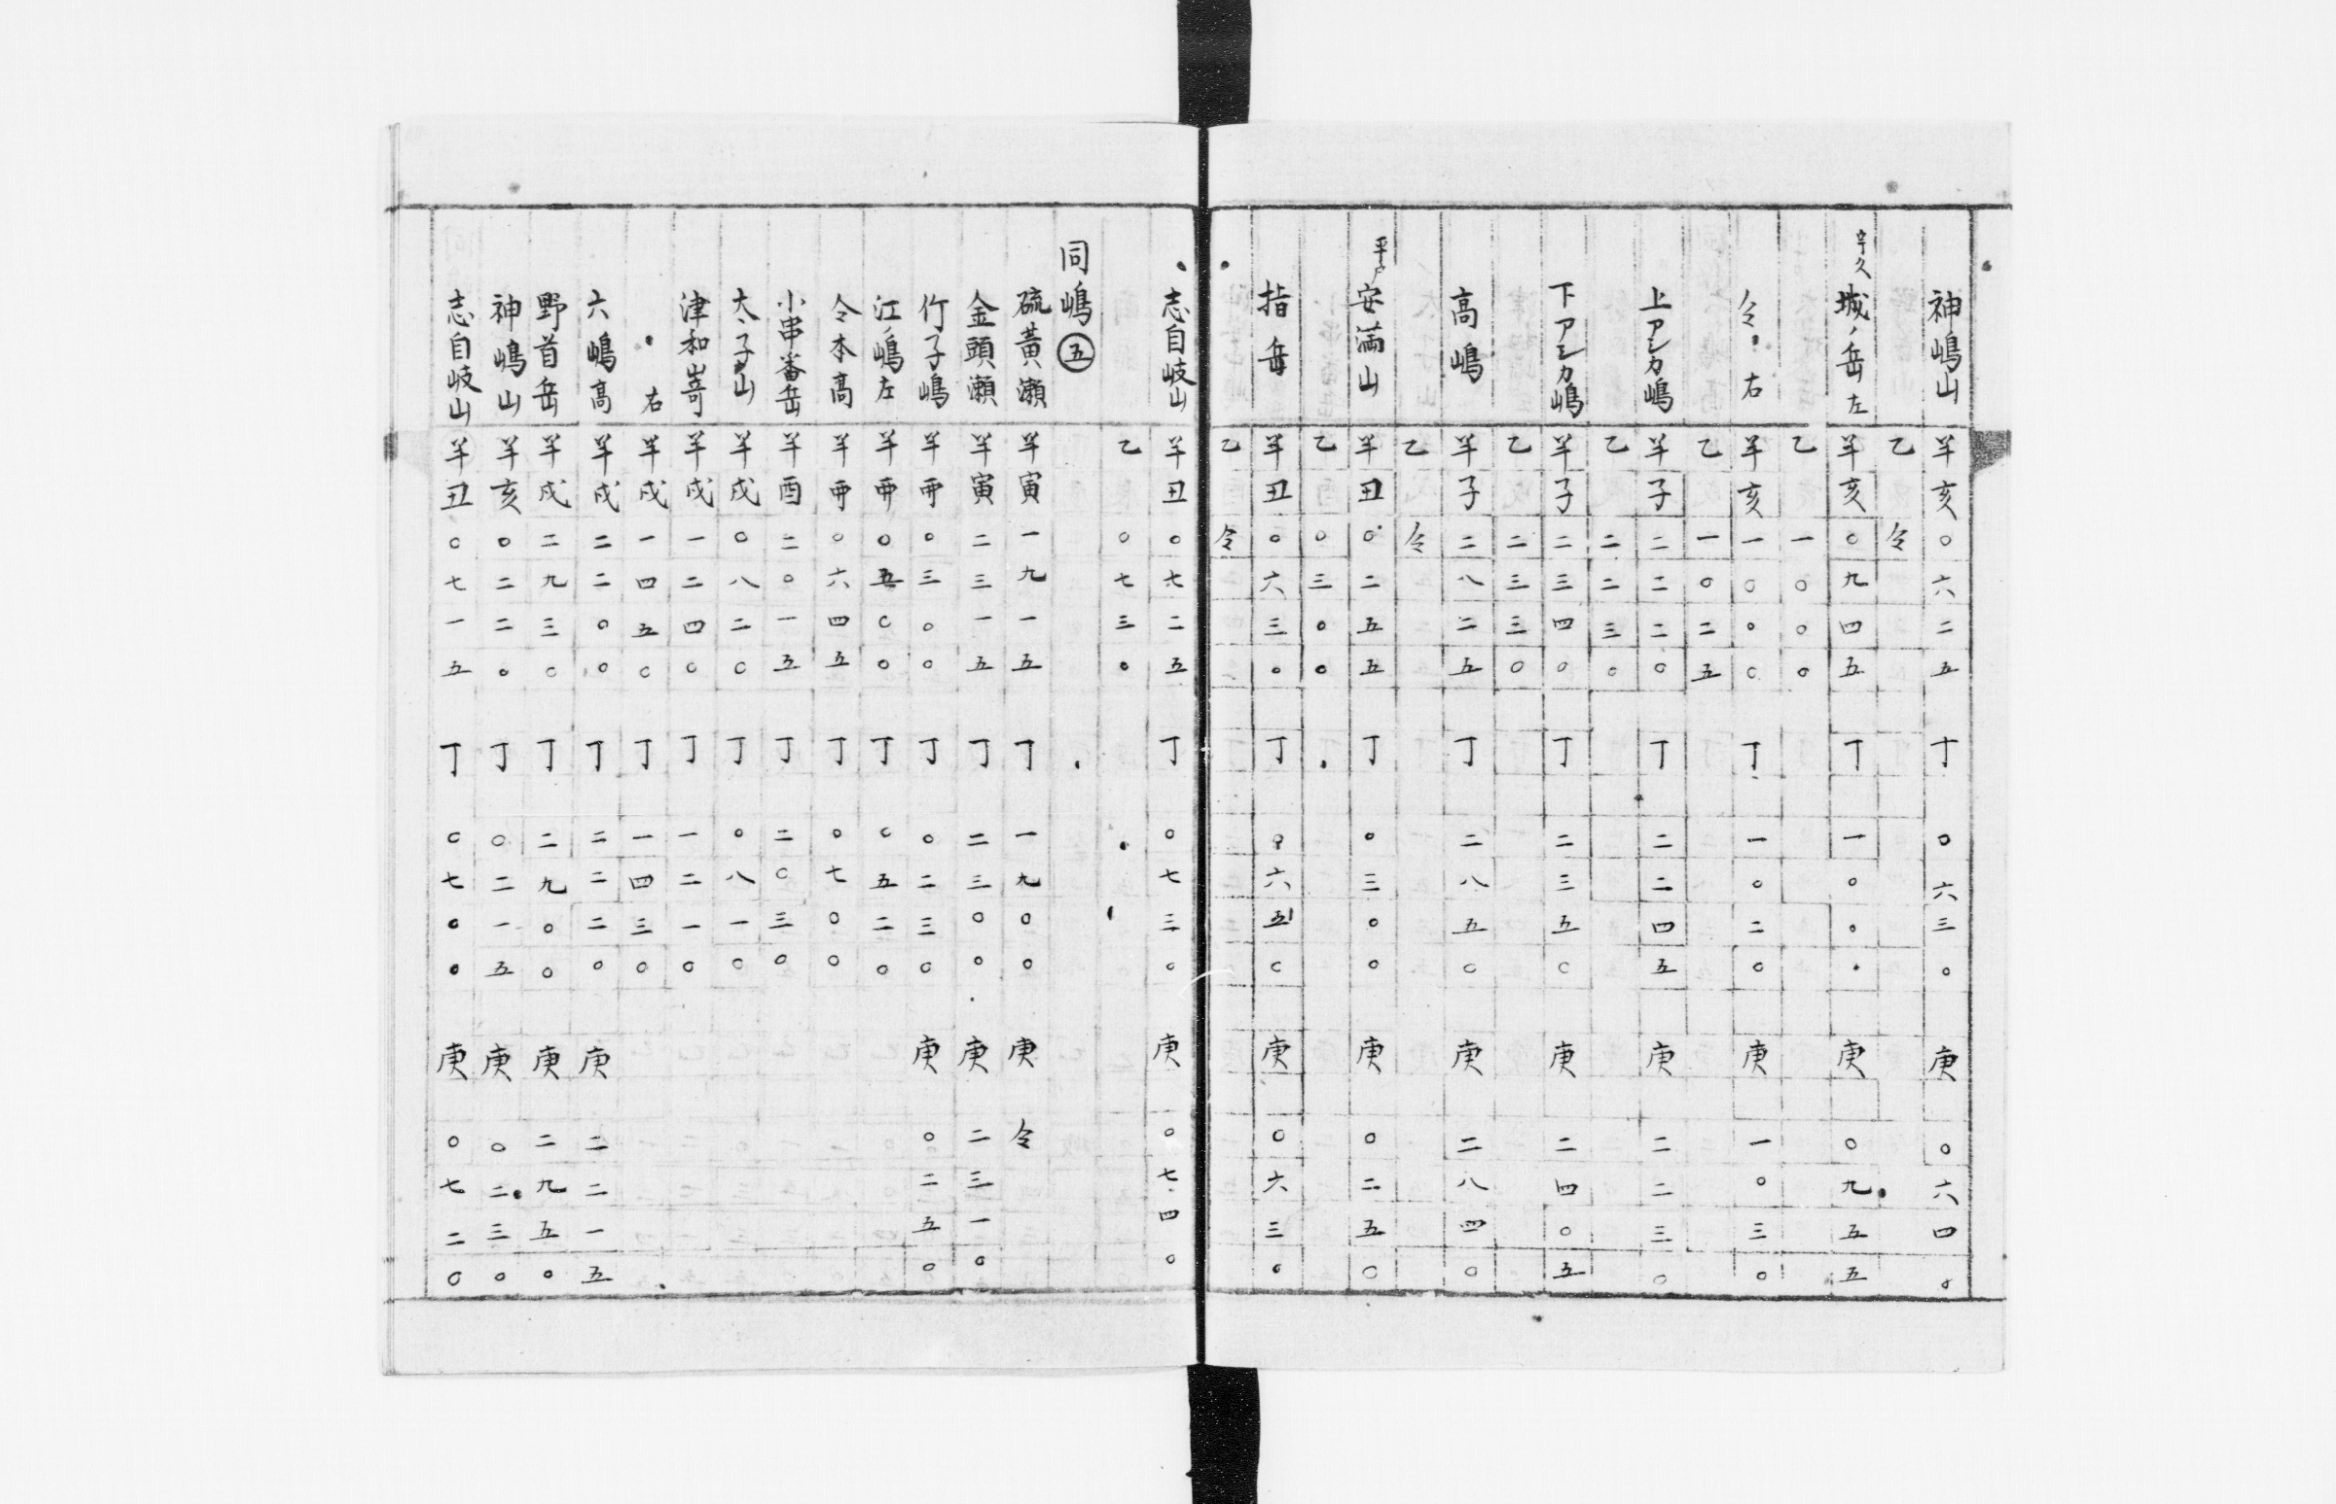 神嶋山 羊亥 〇六二五 丁 〇六三〇 庚 〇六四〇
乙 仝
宇久 城ノ岳 左 羊亥 〇九四五 丁 一〇〇〇 庚 〇九五五
乙 一〇〇〇
仝〃 右 羊亥 一〇〇〇 丁 一〇二〇 庚 一〇三〇
乙 一〇二五
上アシカ嶋 羊子 二二二〇 丁 二二四五 庚 二二三〇
乙 二二三〇
下アシカ嶋 羊子 二三四〇 丁 二三五〇 庚 二四〇五
乙 二三三〇
高嶋 羊子 二八二五 丁 二八五〇 庚 二八四〇
乙 仝
平戸 安満山 羊丑 〇二五五 丁 〇三〇〇 庚 〇二五〇
乙 〇三〇〇
指岳 羊丑 〇六三〇 丁 〇六五〇 庚 〇六三〇
乙 仝
志自岐山 羊丑 〇七二五 丁 〇七三〇 庚 〇七四〇
乙 〇七三〇
同嶋 五
硫黄瀬 羊寅 一九一五 丁 一九〇〇 庚 仝
金頭瀬 羊寅 二三一五 丁 二三〇〇 庚 二三一〇
竹子嶋 羊丣 〇三〇〇 丁 〇二三〇 庚 〇二五〇
江ノ嶋左 羊丣 〇五〇〇 丁 〇五二〇
仝本高 羊丣 〇六四五 丁 〇七〇〇
小串番岳 羊酉 二〇一五 丁 二〇三〇
大子山 羊戌 〇八二〇 丁 〇八一〇
津和嵜 羊戌 一二四〇 丁 一二一〇
〃 右 羊戌 一四五〇 丁 一四三〇
六嶋高 羊戌 二二〇〇 丁 二二二〇 庚 二二一五
野首岳 羊戌 二九三〇 丁 二九〇〇 庚 二九五〇
神嶋山 羊亥 〇二二〇 丁 〇二一五 庚 〇二三〇
志自岐山 羊丑 〇七一五 丁 〇七〇〇 庚 〇七二〇